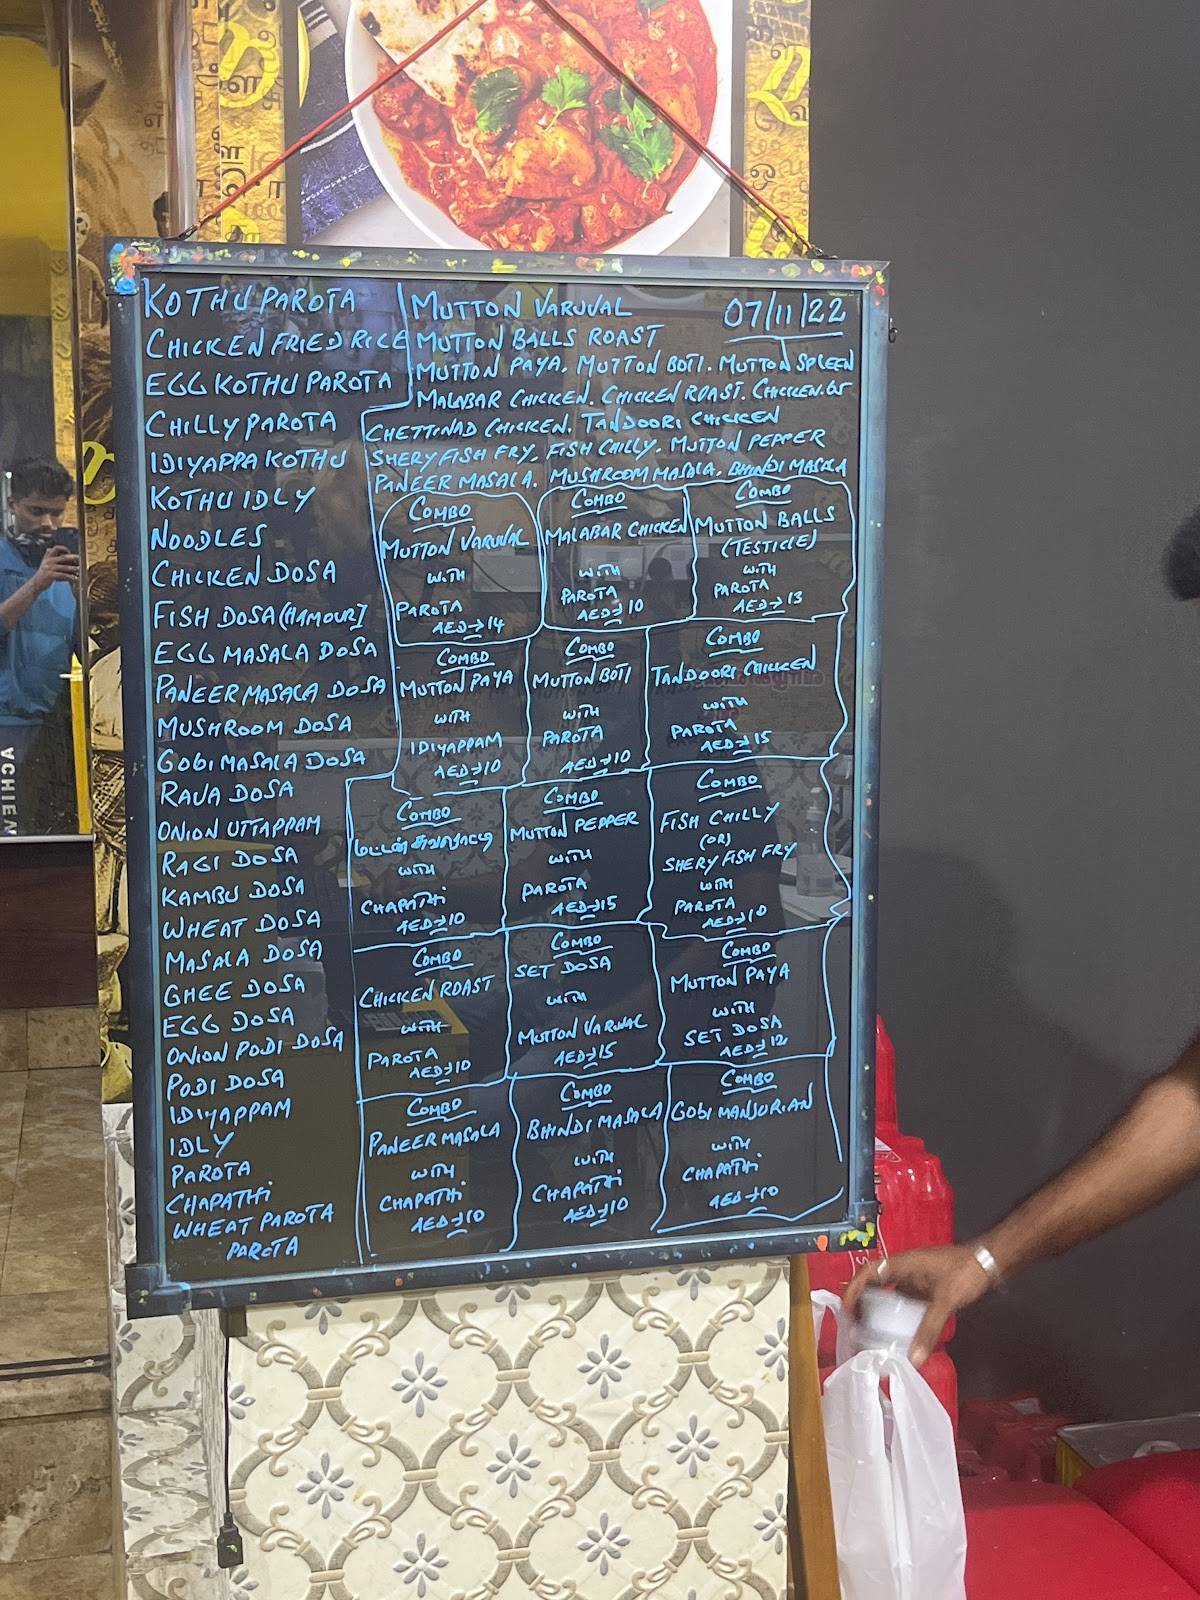 KOTHU PAROTA
CHICKEN FRIED RICE
EGG KOTHU PAROTA
CHILLY PAROTA
IDIYAPPA KOTHU
KOTHU IDLY
NOODLES
CHICKEN DOSA
FISH DOSA (HAMOUR)
EGG MASALA DOSA
PANEER MASALA DOSA
MUSHROOM DOSA
GOBI MASALA DOSA
RAVA DOSA
ONION UTTAPPAM
RAGI DOSA
KAMBU DOSA
WHEAT DOSA
MASALA DOSA
GHEE DOSA
EGG DOSA
ONION PODI DOSA
PODI DOSA
IDIYAPPAM
IDLY
PAROTA
CHAPATHI
WHEAT PAROTA
PAROTA
MUTTON VARUVAL
07/11/22
MUTTON BALLS ROAST
MUTTON PAYA. MUTTON BOTI. MUTTON SPLEEN
MALABAR CHICKEN. CHICKEN ROAST. CHICKEN.65
CHETTINAD CHICKEN. TANDOORI CHICKEN
SHERY FISH FRY. FISH CHILLY. MUTTON PEPPER
PANEER MASALA. MUSHROOM MASALA. BHINDI MASALA
COMBO
MUTTON VARUVAL
WITH
PAROTA
AED→14
COMBO
MALABAR CHICKEN
WITH
PAROTA
AED→10
COMBO
MUTTON BALLS
(TESTICLE)
WITH
PAROTA
AED→13
COMBO
MUTTON PAYA
WITH
IDIYAPPAM
AED→10
COMBO
MUTTON BOTI
WITH
PAROTA
AED→10
COMBO
TANDOORI CHICKEN
WITH
PAROTA
AED→15
COMBO
மட்டன் சுவரொட்டி
WITH
CHAPATHI
AED→10
COMBO
MUTTON PEPPER
WITH
PAROTA
AED→15
COMBO
FISH CHILLY
(OR)
SHERY FISH FRY
WITH
PAROTA
AED→10
COMBO
CHICKEN ROAST
WITH
PAROTA
AED→10
COMBO
SET DOSA
WITH
MUTTON VARUVAL
AED→15
COMBO
MUTTON PAYA
WITH
SET DOSA
AED→12
COMBO
PANEER MASALA
WITH
CHAPATHI
AED→10
COMBO
BHINDI MASALA
WITH
CHAPATHI
AED→10
COMBO
GOBI MANJURIAN
WITH
CHAPATHI
AED→10